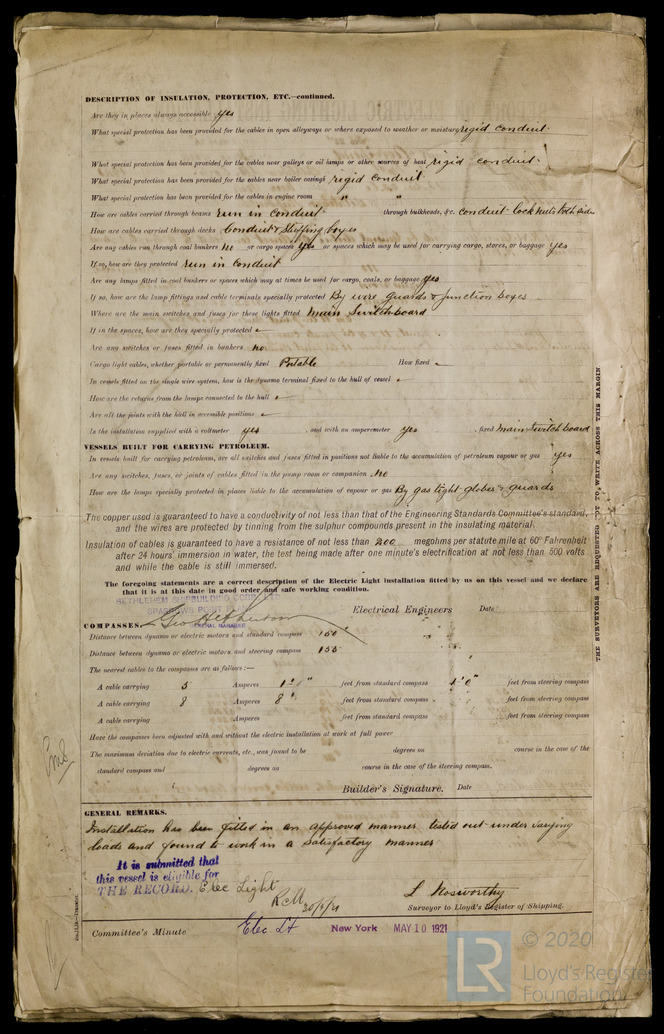 DESCRIPTION OF INSULATION, PROTECTION, ETC.—continued.
Are they in places always accessible yes
What special protection has been provided for the cables in open alleyways or where exposed to weather or moisture rigid conduit
What special protection has been provided for the cables near galleys or oil lamps or other sources of heat rigid conduit
What special protection has been provided for the cables near boiler casings rigid conduit
What special protection has been provided for the cables in engine room " "
How are cables carried through beams run in conduit through bulkheads, &c. conduit locknuts both sides
How are cables carried through decks Conduit & Stuffing boxes
Are any cables run through coal bunkers no or cargo spaces yes or spaces which may be used for carrying cargo, stores, or baggage yes
If so, how are they protected run in conduit
Are any lamps fitted in coal bunkers or spaces which may at times be used for cargo, coals, or baggage yes
If so, how are the lamp fittings and cable terminals specially protected By wire guards & junction boxes
Where are the main switches and fuses for these lights fitted main Switchboard
If in the spaces, how are they specially protected
Are any switches or fuses fitted in bunkers no
Cargo light cables, whether portable or permanently fixed Portable How fixed
In vessels fitted on the single wire system, how is the dynamo terminal fixed to the hull of vessel
How are the returns from the lamps connected to the hull
Are all the joints with the hull in accessible positions
Is the installation supplied with a voltmeter yes , and with an amperemeter yes , fixed main switchboard
VESSELS BUILT FOR CARRYING PETROLEUM.
In vessels built for carrying petroleum, are all switches and fuses fitted in positions not liable to the accumulation of petroleum vapour or gas yes
Are any switches, fuses, or joints of cables fitted in the pump room or companion no
How are the lamps specially protected in places liable to the accumulation of vapour or gas By gas tight globes & guards
The copper used is guaranteed to have a conductivity of not less than that of the Engineering Standards Committee's standard,
and the wires are protected by tinning from the sulphur compounds present in the insulating material.
Insulation of cables is guaranteed to have a resistance of not less than 200 megohms per statute mile at 60° Fahrenheit
after 24 hours' immersion in water, the test being made after one minute's electrification at not less than 500 volts
and while the cable is still immersed.
The foregoing statements are a correct description of the Electric Light installation fitted by us on this vessel and we declare
that it is at this date in good order and safe working condition.
BETHLEHEM SHIPBUILDING
SPARROWS POINT
Electrical Engineers Date
GENERAL MANAGER
COMPASSES.
Distance between dynamo or electric motors and standard compass 150'
Distance between dynamo or electric motors and steering compass 155
The nearest cables to the compasses are as follows:—
A cable carrying 5 Amperes feet from standard compass feet from steering compass
A cable carrying 8 Amperes 8 feet from standard compass feet from steering compass
A cable carrying Amperes feet from standard compass feet from steering compass
Have the compasses been adjusted with and without the electric installation at work at full power
The maximum deviation due to electric currents, etc., was found to be degrees on course in the case of the
standard compass and degrees on course in the case of the steering compass.
Builder's Signature. Date
GENERAL REMARKS.
Installation has been fitted in an approved manner tested out under varying
loads and found to work in a satisfactory manner
It is submitted that
this vessel is eligible for
THE RECORD. Elec Light
L Nosworthy
Surveyor to Lloyd's Register of Shipping.
Committee's Minute Elec Lt New York MAY 10 1921
THE SURVEYORS ARE REQUESTED NOT TO WRITE ACROSS THIS MARGIN
LR © 2020
Lloyd's Register
Foundation